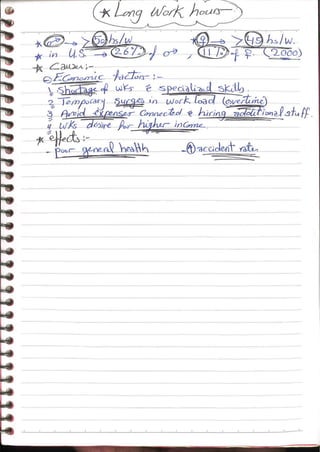 * Long Work hours
* ♂ → > 50 hs/w ♀ → > 45 hs/w.
* in US → 26% of ♂, 11% of ♀. (2000)
* Causes:-
Economic factors:-
1 Shortage of wks specialized skills.
2 Temporary Surges in work load (overtime)
3 Avoid expenses Connected hiring additional stuff.
4 wks desire for higher income.
* effects:-
- poor general health - ↑ accident rates